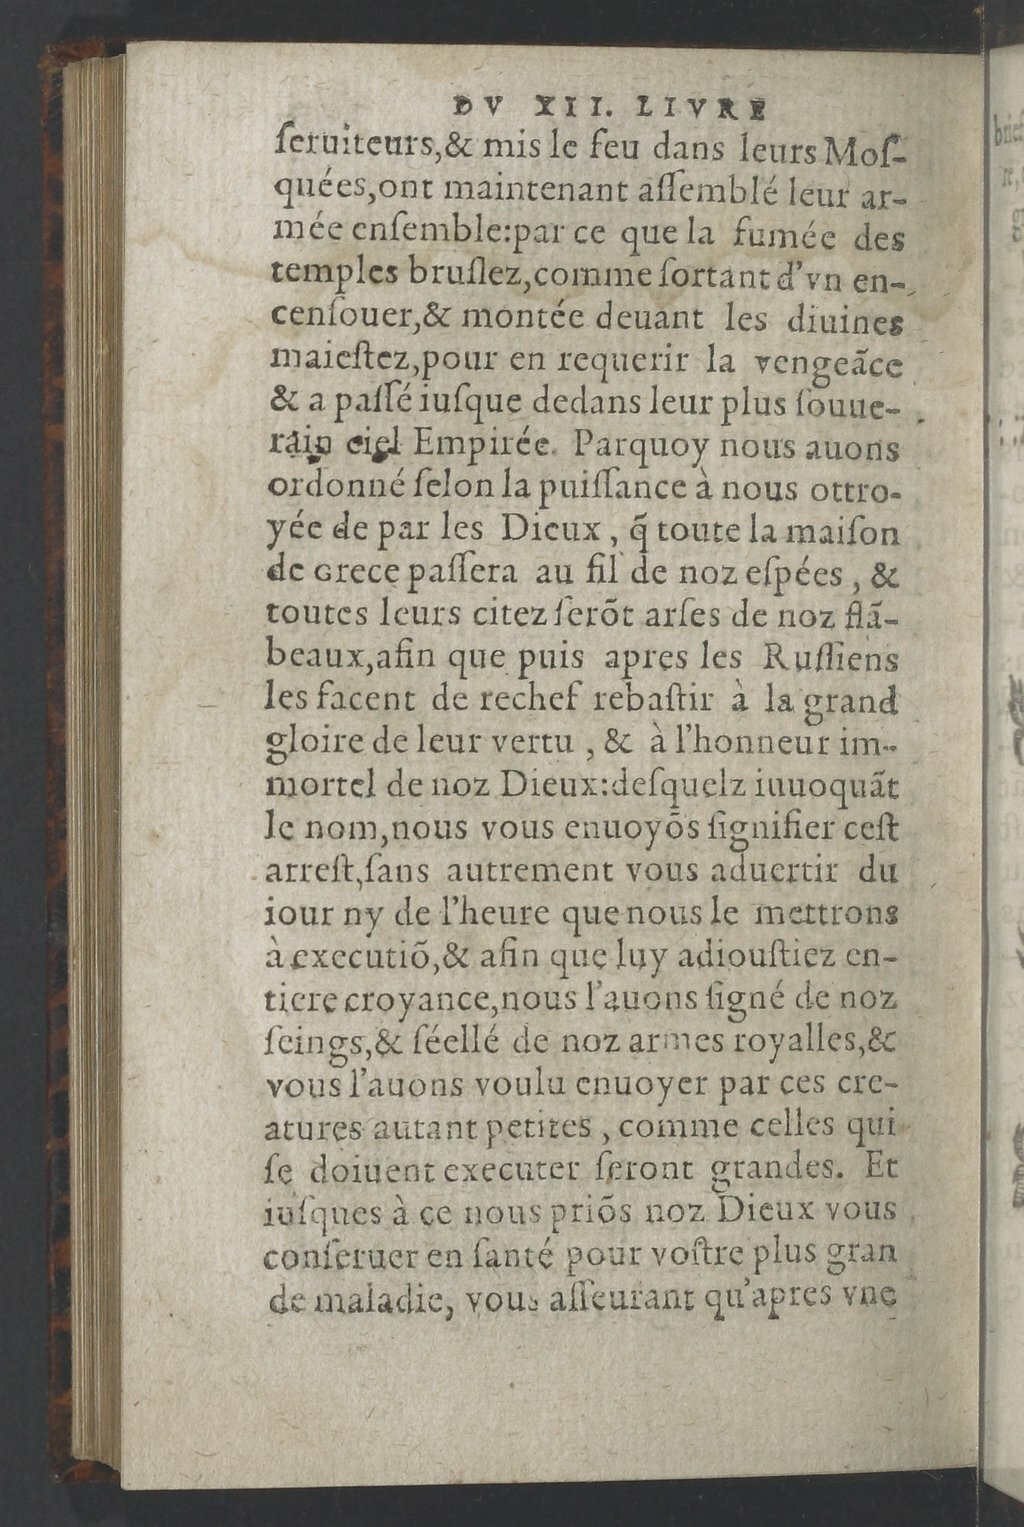 DV XII. LIVRE
ſeruiteurs,& mis le feu dans leurs Moſ-
quées,ont maintenant aſſemblé leur ar-
mée enſemble:par ce que la fumée des
temples bruſlez,comme ſortant d'vn en-
cenſouer,& montée deuant les diuines
maieſtez,pour en requerir la vengeãce
& a paſſé iuſque dedans leur plus ſouue-
rain ciel Empirée. Parquoy nous auons
ordonné ſelon la puiſſance à nous ottro-
yée de par les Dieux , q̃ toute la maiſon
de Grece paſſera au fil de noz eſpées , &
toutes leurs citez ſerõt arſes de noz flã-
beaux,afin que puis apres les Ruſſiens
les facent de rechef rebaſtir à la grand
gloire de leur vertu , & à l'honneur im-
mortel de noz Dieux:deſquelz iuuoquãt
le nom,nous vous enuoyõs ſignifier ceſt
arreſt,ſans autrement vous aduertir du
iour ny de l'heure que nous le mettrons
à executiõ,& afin que luy adiouſtiez en-
tiere croyance,nous l'auons ſigné de noz
ſeings,& ſéellé de noz armes royalles,&
vous l'auons voulu enuoyer par ces cre-
atures autant petites , comme celles qui
ſe doiuent executer ſeront grandes. Et
iuſques à ce nous priõs noz Dieux vous
conſeruer en ſanté pour voſtre plus gran
de maladie, vous aſſeurant qu'apres vne